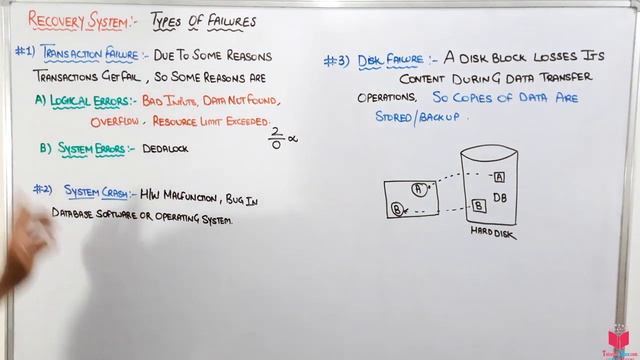 RECOVERY SYSTEM:- TYPES OF FAILURES
#1) TRANSACTION FAILURE:- DUE TO SOME REASONS
TRANSACTIONS GET FAIL, SO SOME REASONS ARE
A) LOGICAL ERRORS:- BAD INPUTS, DATA NOT FOUND,
OVERFLOW. RESOURCE LIMIT EXCEEDED.
2/0 ∝
B) SYSTEM ERRORS:- DEDALOCK
#2) SYSTEM CRASH:- H/W MALFUNCTION, BUG IN
DATABASE SOFTWARE OR OPERATING SYSTEM.
#3) DISK FAILURE:- A DISK BLOCK LOSSES ITS
CONTENT DURING DATA TRANSFER
OPERATIONS, SO COPIES OF DATA ARE
STORED/BACKUP.
A
A
B
B
DB
HARD DISK